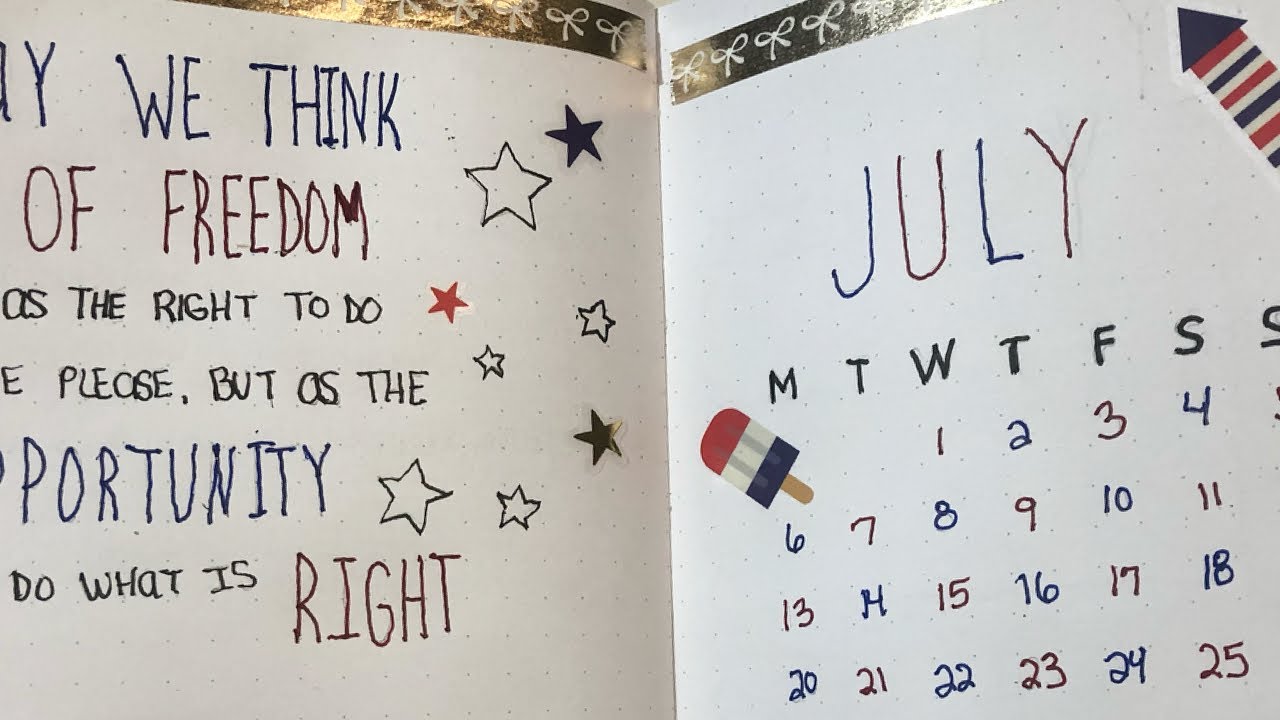 WE THINK
OF FREEDOM
AS THE RIGHT TO DO
PLEASE, BUT AS THE
PPORTUNITY
DO WHAT IS RIGHT
JULY
M T W T F S S
1 2 3 4
6 7 8 9 10 11
13 14 15 16 17 18
20 21 22 23 24 25